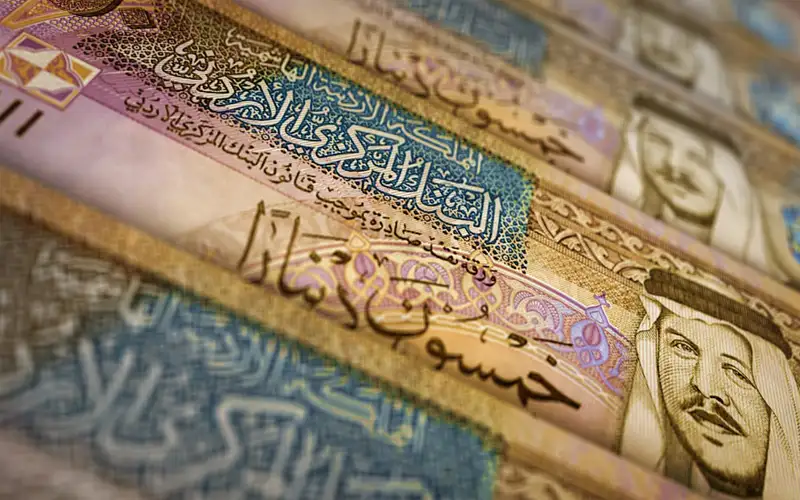 المملكة الأردنية الهاشمية
البنك المركزي الأردني
ورقة نقد صادرة بموجب قانون البنك المركزي الأردني
خمسون دينارًا
خمسون دينارًا
المملكة الأر
المركزي الأرد